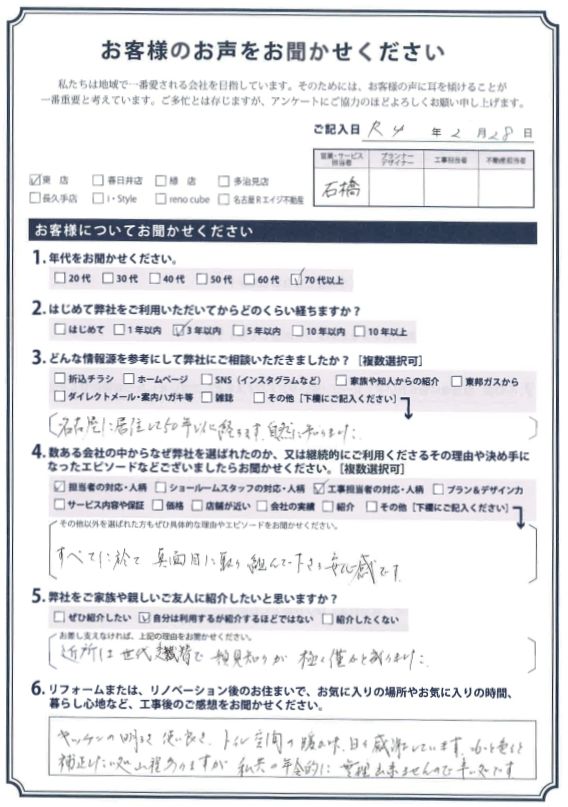 お客様のお声をお聞かせください
私たちは地域で一番愛される会社を目指しています。そのためには、お客様の声に耳を傾けることが
一番重要と考えています。ご多忙とは存じますが、アンケートにご協力のほどよろしくお願い申し上げます。
ご記入日 R4 年 2 月 28 日
営業・サービス担当者 プランナーデザイナー 工事担当者 不動産担当者
石橋
☑東 店 □春日井店 □緑 店 □多治見店
□長久手店 □i・Style □reno cube □名古屋Rエイジ不動産
お客様についてお聞かせください
1. 年代をお聞かせください。
□20代 □30代 □40代 □50代 □60代 ☑70代以上
2. はじめて弊社をご利用いただいてからどのくらい経ちますか？
□はじめて □1年以内 ☑3年以内 □5年以内 □10年以内 □10年以上
3. どんな情報源を参考にして弊社にご相談いただきましたか？［複数選択可］
□折込チラシ □ホームページ □SNS（インスタグラムなど） □家族や知人からの紹介 □東邦ガスから
□ダイレクトメール・案内ハガキ等 □雑誌 □その他［下欄にご記入ください］
名古屋に居住して50年以上経ちます。自然に知りました
4. 数ある会社の中からなぜ弊社を選ばれたのか、又は継続的にご利用くださるその理由や決め手に
なったエピソードなどございましたらお聞かせください。［複数選択可］
☑担当者の対応・人柄 □ショールームスタッフの対応・人柄 ☑工事担当者の対応・人柄 □プラン&デザイン力
□サービス内容や保証 □価格 □店舗が近い □会社の実績 □紹介 □その他［下欄にご記入ください］
その他以外を選ばれた方もぜひ具体的な理由やエピソードをお聞かせください。
すべてに於て 真面目に取り組んで下さる安心感です
5. 弊社をご家族や親しいご友人に紹介したいと思いますか？
□ぜひ紹介したい ☑自分は利用するが紹介するほどではない □紹介したくない
お差し支えなければ、上記の理由をお聞かせください。
近所は世代 で 顔見知りが 極く僅かと
6. リフォームまたは、リノベーション後のお住まいで、お気に入りの場所やお気に入りの時間、
暮らし心地など、工事後のご感想をお聞かせください。
キッチンの明るさ 使い良さ、トイレ空間の暖かさ、日々感謝しています。
補正したい処 山程ありますが 私共の年令的に 無理出来ませんので